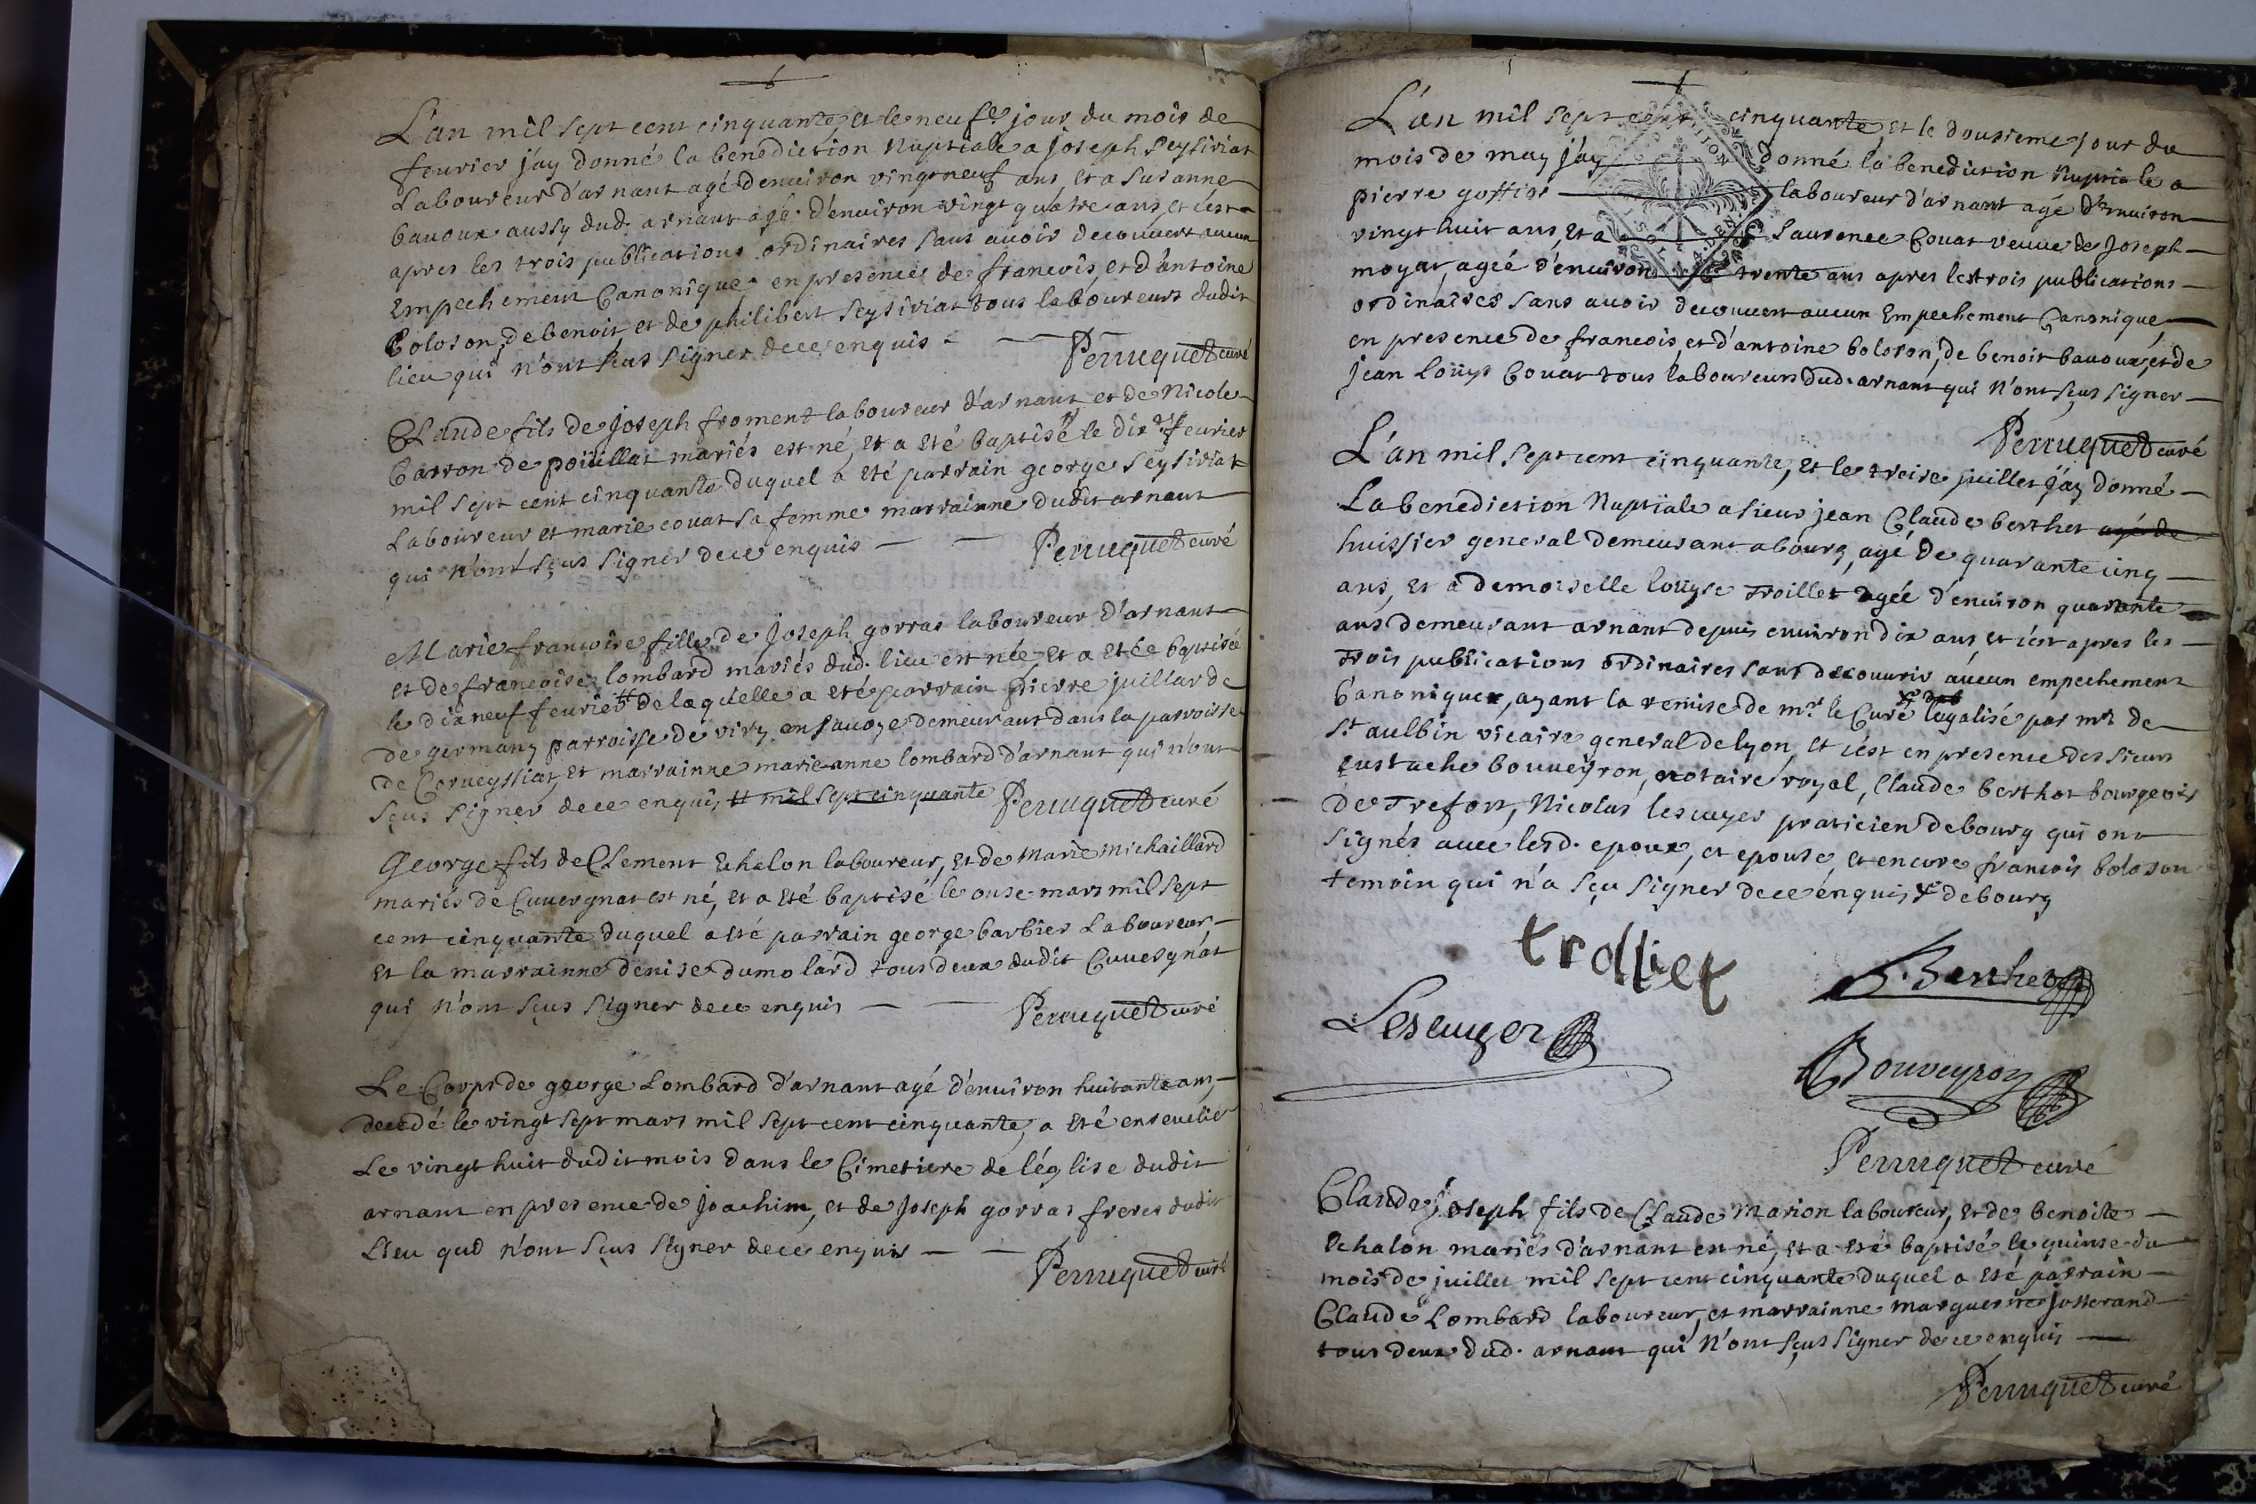 L'an mil sept cent cinquante, et le neufe jour du mois de
fevrier j'ay donné la benediction Nuptiale a joseph Seysiriat
Laboureur d'arnant agé d'environ vingt neuf ans, et a Susanne
bavoux aussy dud. arnant agée d'environ vingt quatre ans, et c'est
apres les trois publications ordinaires sans avoir decouvert aucun
Empechement Canonique, en presences de francois, et d'antoine
Boloson, de benoit et de philibert Seysiriat tous laboureurs dudit
lieu qui n'ont sçus signer de ce enquis - — Perruquet curé
Claude fils de joseph froment laboureur d'arnant et de Nicole
Carron de poüillat mariés est né, et a eté baptisé le dix fevrier
mil sept cent cinquante duquel a eté parrain george Seysiriat
Laboureur et marie covat sa femme marrainne dudit arnant
qui n'ont sçus signer de ce enquis — — Perruquet curé
Marie francoise fille de joseph gorras laboureur d'arnant
et de francoise lombard mariés dud. lieu est née, et a etée baptisée
le dix neuf fevrier de laquelle a eté parrain pierre juillard
de germany parroisse de viry en savoye demeurant dans la parroisse
de Corveyssiat, et marrainne marie anne lombard d'arnant qui n'ont
sçus signer de ce enquis et mil sept cinquante Perruquet curé
George fils de Clement Echalon laboureur, et de Marie Michaillard
mariés de Cuvergnat est né, et a eté baptisé le onse mars mil sept
cent cinquante duquel a eté parrain george barbier Laboureur, —
et la marrainne denise dumolard tous deux dudit Cuvergnat
qui n'ont sçus signer de ce enquis — — Perruquet curé
Le Corps de george Lombard d'arnant agé d'environ huitante ans, —
decedé le vingt sept mars mil sept cent cinquante, a eté enseveli
Le vingt huit dudit mois dans le Cimetiere de léglise dudit
arnant en presence de joachim, et de joseph gorras freres dudit
Lieu qui n'ont sçus signer de ce enquis — — Perruquet curé
L'an mil sept cent cinquante et le dousieme jour du
mois de may j'ay donné la benediction Nuptiale a
pierre goffior — laboureur d'arnant agé d'environ
vingt huit ans, et a Laurence Covat veuve de joseph —
moyat, ageé d'environ trente ans apres les trois publications —
ordinaires sans avoir decouvert aucun Empechement Canonique —
en presence de francois, et d'antoine boloson, de benoit bavoux, et de
jean loüys Covat tous laboureurs dud. arnant qui n'ont sçus signer —
Perruquet curé
L'an mil sept cent cinquante, et le treise juillet j'ay donné —
La benediction Nuptiale a sieur jean Claude berthet agé de
huissier general demeurant a bourg, agé de quarante cinq —
ans, et a demoiselle loüyse Troillet agée d'environ quarante
ans demeurant arnant depuis environ dix ans, et c'est apres les —
Trois publications ordinaires sans decouvrir aucun empechement
Canonique, ayant la remise de mr. le Curé legalisé par mr de
St aulbin vicaire general de lyon, et c'est en presence des sieurs
Eustache bouveyron, notaire royal, Claude berthet bourgeois
de Trefort, Nicolas lescuyer praticien de bourg qui ont
signés avec lesd. epoux, et epouse, et encore francois boloson
temoin qui n'a sçu signer de ce enquis de bourg
trolliet
Berthet
Lescuyer
Bouveyron
Perruquet curé
Claude joseph fils de Claude Marion laboureur, et de benoite —
Echalon mariés d'arnant est né, et a eté baptisé le quinse du
mois de juillet mil sept cent cinquante duquel a eté parrain —
Claude Lombard laboureur, et marrainne marguerite josserand
tous deux dud. arnant qui n'ont sçus signer de ce enquis —
Perruquet curé